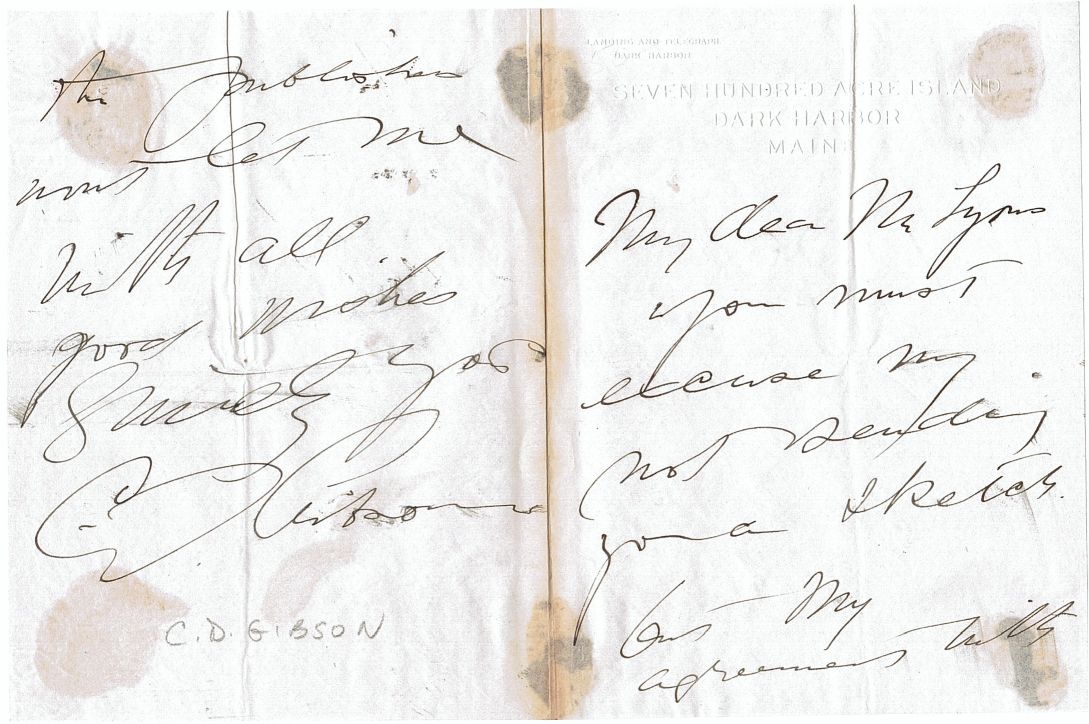 LANDING AND TELEGRAPH
DARK HARBOR
SEVEN HUNDRED ACRE ISLAND
DARK HARBOR
MAINE
My dear Mr Lyons
you must
excuse my
not sending
you a sketch.
but my
agreement with
the publisher
wont let me
With all
good wishes
Sincerely yos
C D Gibson
C.D. GIBSON